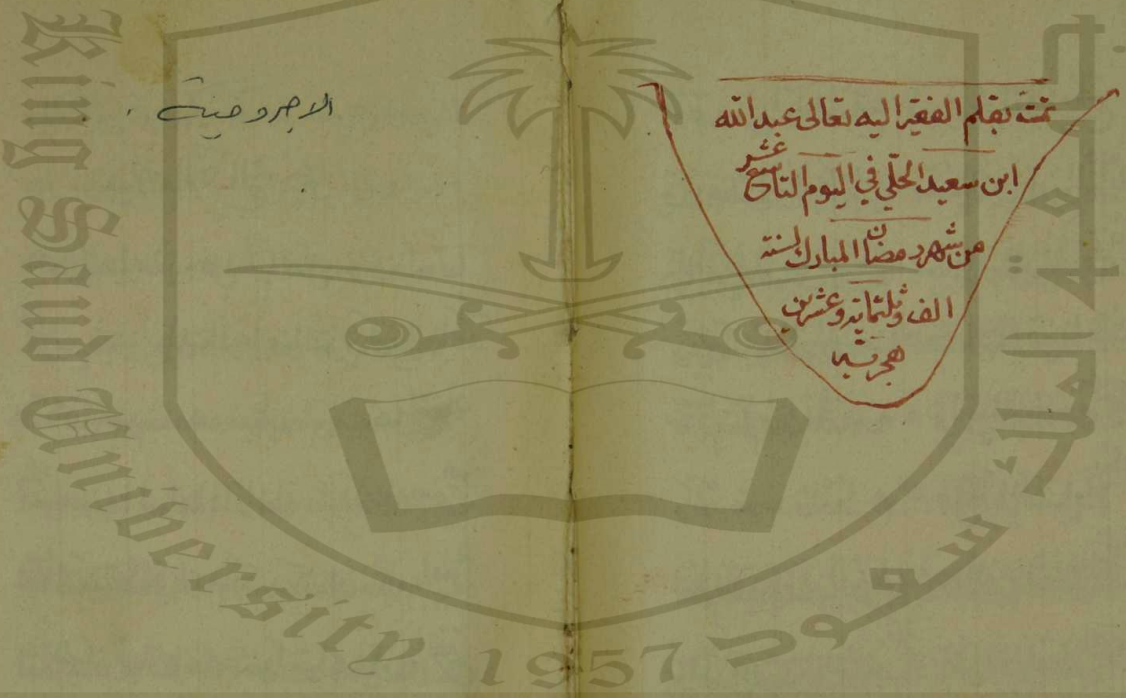 تمت بقلم الفقير اليه تعالى عبد الله
ابن سعيد الحلّي في اليوم التاسع عشر
من شهر رمضان المبارك لسنة
الف وثلثماية وعشرين
هجرية
الاجرومية .
King Saud University 1957
جامعة الملك سعود